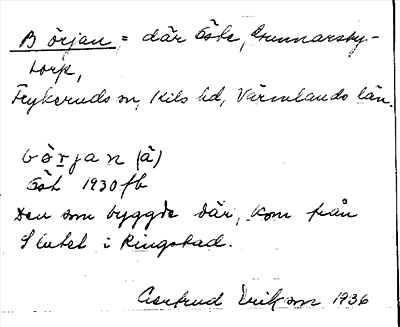 Början = där Öste, Gunnarsby-
torp,
Frykeruds sn, Kils hd, Värmlands län.
början (à)
1930 fb
Den som byggde där, kom från
Slutet i Ringstad.
Gertrud Erikson 1936